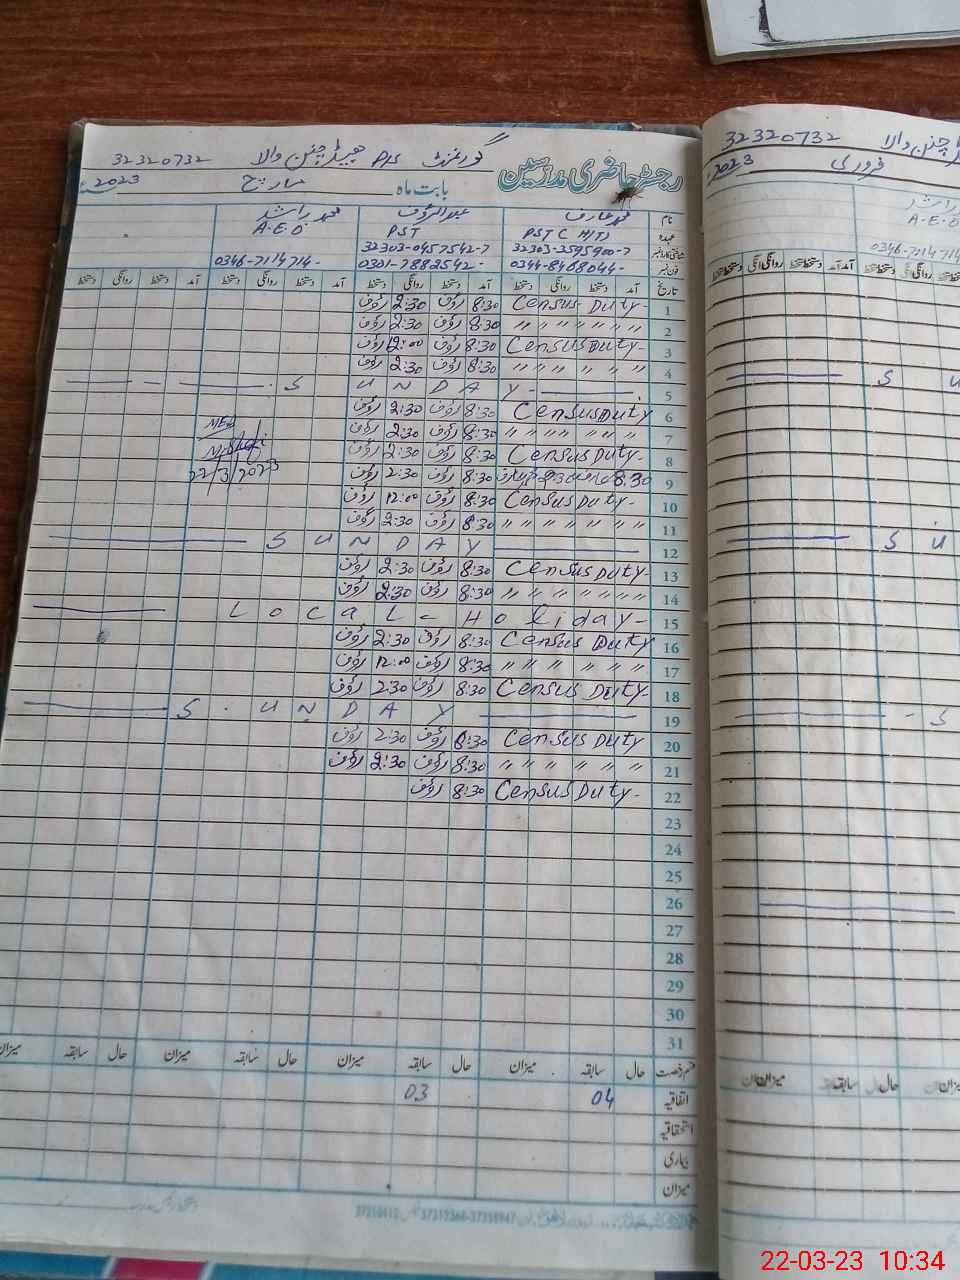 گورنمنٹ P/S ہیڈ چنن والا 32320732
رجسٹر حاضری مدرسین
بابت ماہ مارچ 2023
نام محمد عارف عبدالرؤف محمد راشد
عہدہ PST (H/T) PST A.E.O
32303-3595900-7 32303-0457542-7
فون نمبر 0344-8468044- 0301-7882542- 0346-7114714-
تاریخ آمد دستخط روانگی دستخط آمد دستخط روانگی دستخط آمد دستخط روانگی دستخط آمد دستخط
1 Census Duty 8:30 رؤف 2:30 رؤف
2 " " " " " " " 8:30 رؤف 2:30 رؤف
3 Census Duty- 8:30 رؤف 12:00 رؤف
4 " " " " " " " 8:30 رؤف 2:30 رؤف
5 S U N D A Y -
6 Census Duty 8:30 رؤف 2:30 رؤف
7 " " " " " " " 8:30 رؤف 2:30 رؤف
8 Census Duty- 8:30 رؤف 2:30 رؤف
9 8:30 عارف 2:30 عارف 8:30 رؤف 2:30 رؤف
10 Census Duty- 8:30 رؤف 12:00 رؤف
11 " " " " " " " 8:30 رؤف 2:30 رؤف
12 S U N D A Y
13 Census Duty- 8:30 رؤف 2:30 رؤف
14 " " " " " " " 8:30 رؤف 2:30 رؤف
15 L o c a L - H o l i d a y -
16 Census Duty 8:30 رؤف 2:30 رؤف
17 " " " " " " 8:30 رؤف 12:00 رؤف
18 Census Duty- 8:30 رؤف 2:30 رؤف
19 S . U N D A Y
20 Census Duty 8:30 رؤف 2:30 رؤف
21 " " " " " " 8:30 رؤف 2:30 رؤف
22 Census Duty- 8:30 رؤف
23
24
25
26
27
28
29
30
31
MEA
22/3/2023
قسم رخصت حال سابقہ میزان حال سابقہ میزان حال سابقہ میزان حال سابقہ میزان
اتفاقیہ 04 03
استحقاقیہ
بیماری
میزان
چنن والا 32320732
فروری 2023
راشد
A.E.O
0346-7114714
S U
S U
- S
22-03-23 10:34